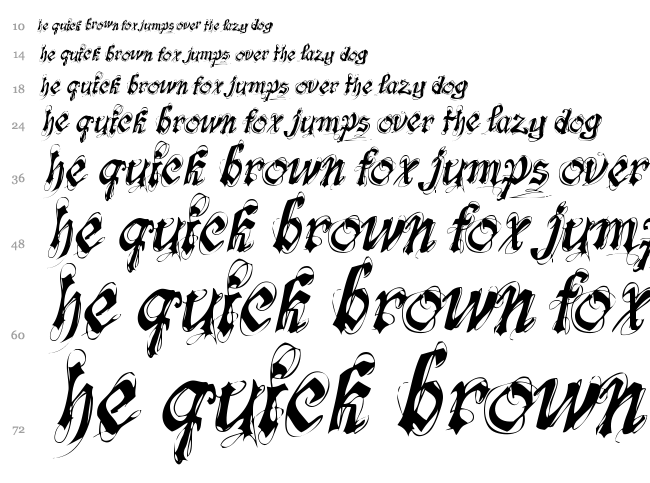 10 he quick brown fox jumps over the lazy dog
14 he quick brown fox jumps over the lazy dog
18 he quick brown fox jumps over the lazy dog
24 he quick brown fox jumps over the lazy dog
36 he quick brown fox jumps over
48 he quick brown fox jump
60 he quick brown fox
72 he quick brown